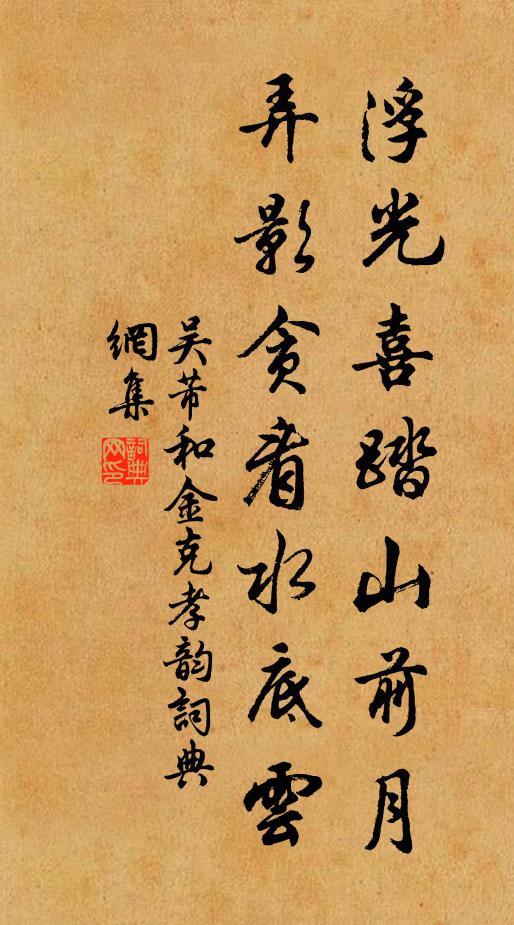 浮光喜踏山前月
弄影貪看水底雲
吴芾和金克孝韵詞典
網集
詞典
网印